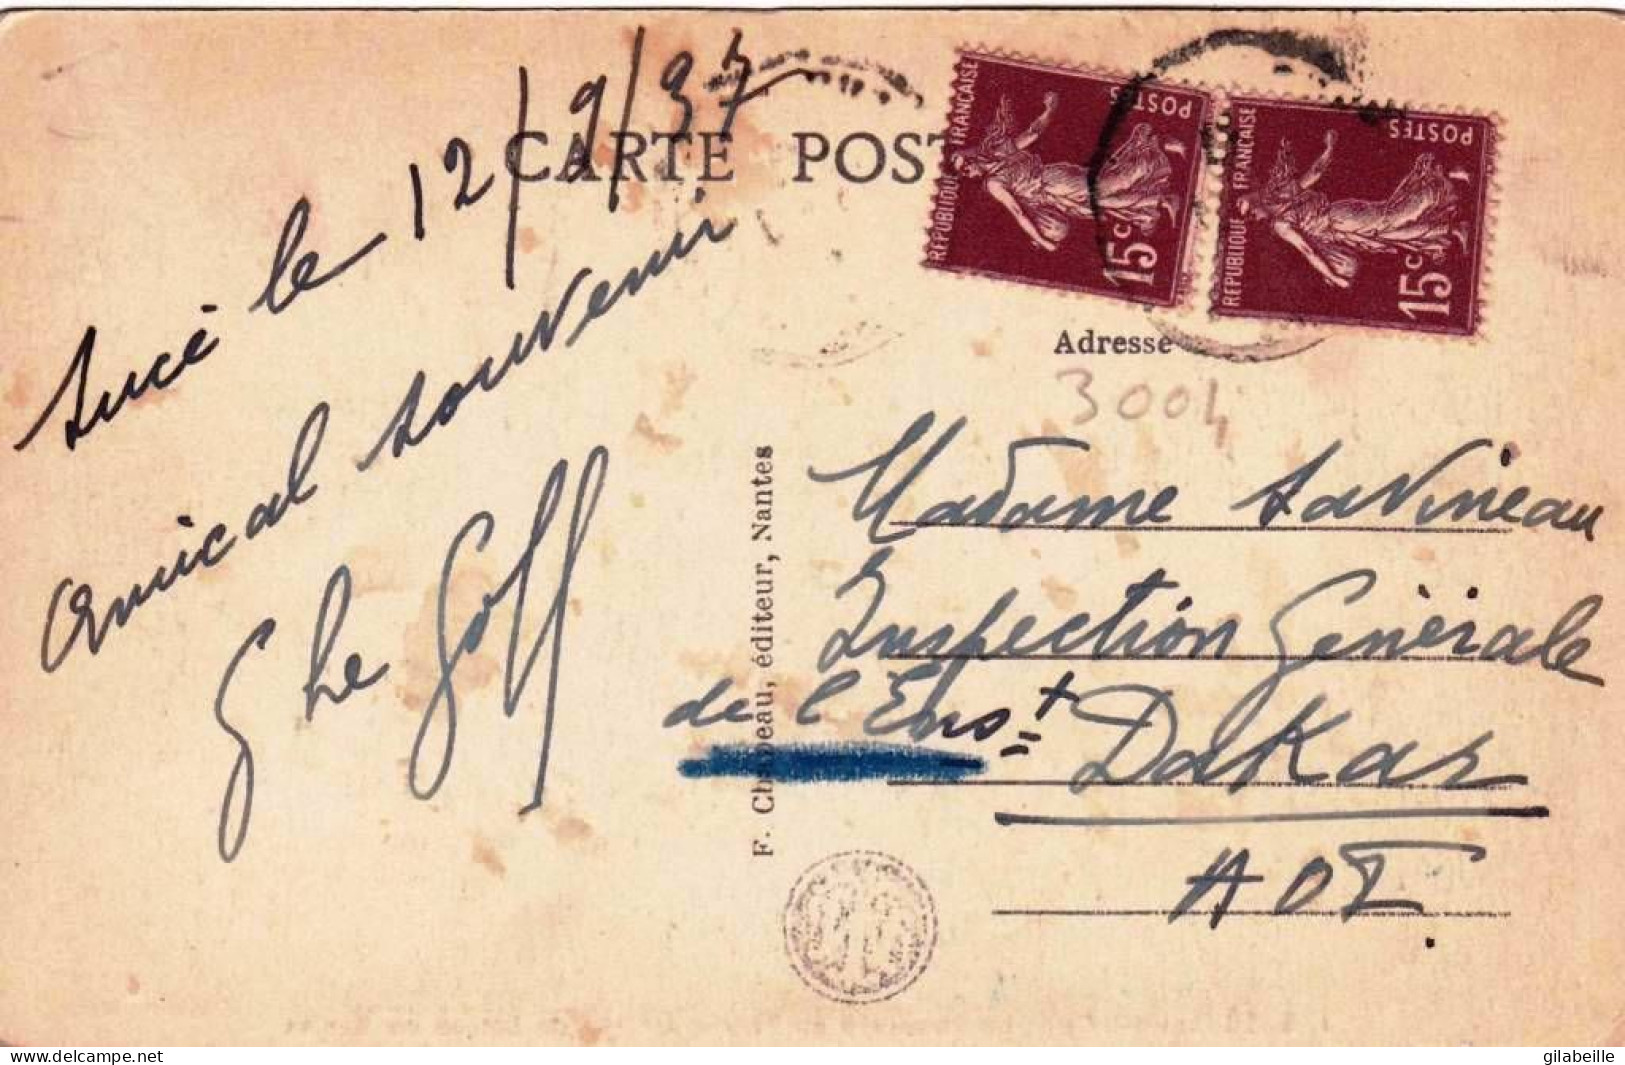 CARTE POST
Sucé le 12/9/37
amical souvenir
G Le Goff
REPUBLIQUE FRANÇAISE
POSTES
15c
REPUBLIQUE FRANÇAISE
POSTES
15c
Adresse
3004
Madame Savineau
Inspection Générale
de l'Enst
Dakar
AOF
F. Chapeau, éditeur, Nantes
www.delcampe.net
gilabeille